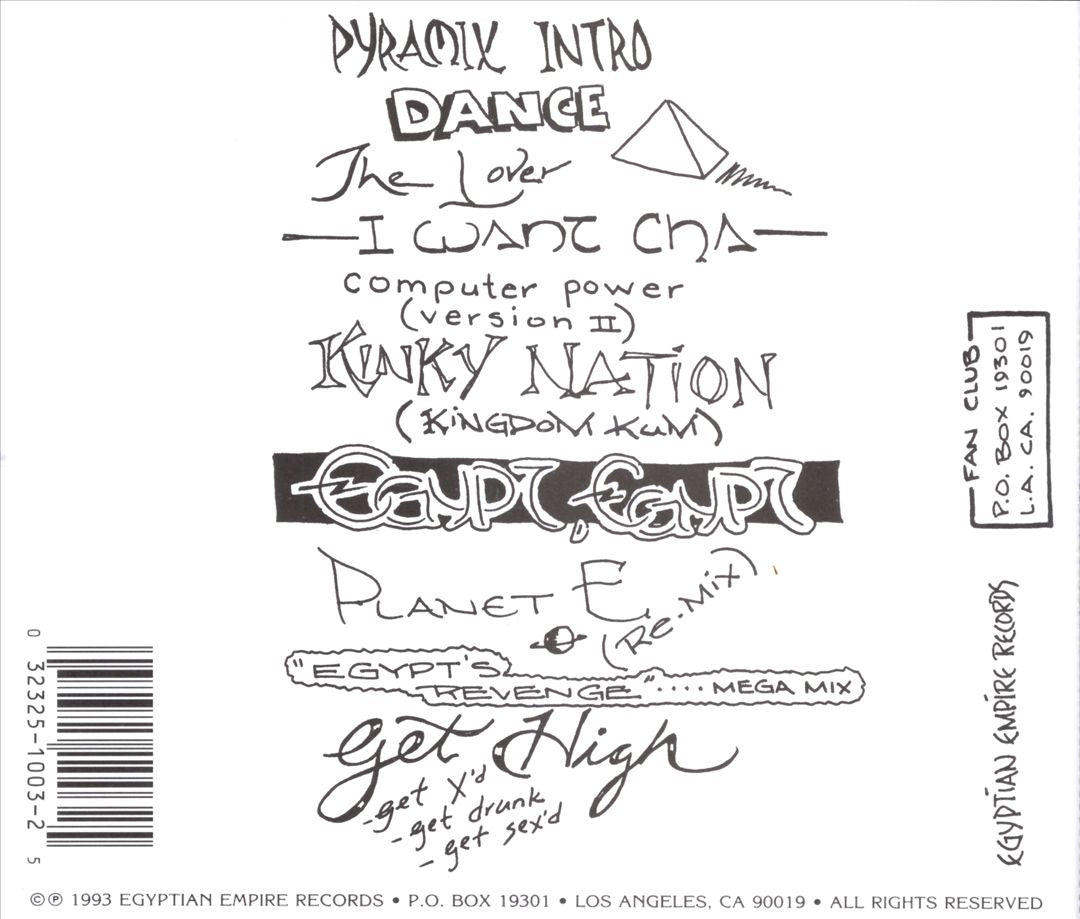 PYRAMIX INTRO
DANCE
The Lover
I WANT CHA
computer power
(version II)
KINKY NATION
(KINGDOM KUM)
EGYPT, EGYPT
PLANET E
(RE-MIX)
"EGYPT'S
REVENGE".... MEGA MIX
get High
-get X'd
- get drunk
- get sex'd
FAN CLUB
P.O. BOX 19301
L.A. CA. 90019
EGYPTIAN EMPIRE RECORDS
0 32325-1003-2 5
©℗ 1993 EGYPTIAN EMPIRE RECORDS • P.O. BOX 19301 • LOS ANGELES, CA 90019 • ALL RIGHTS RESERVED